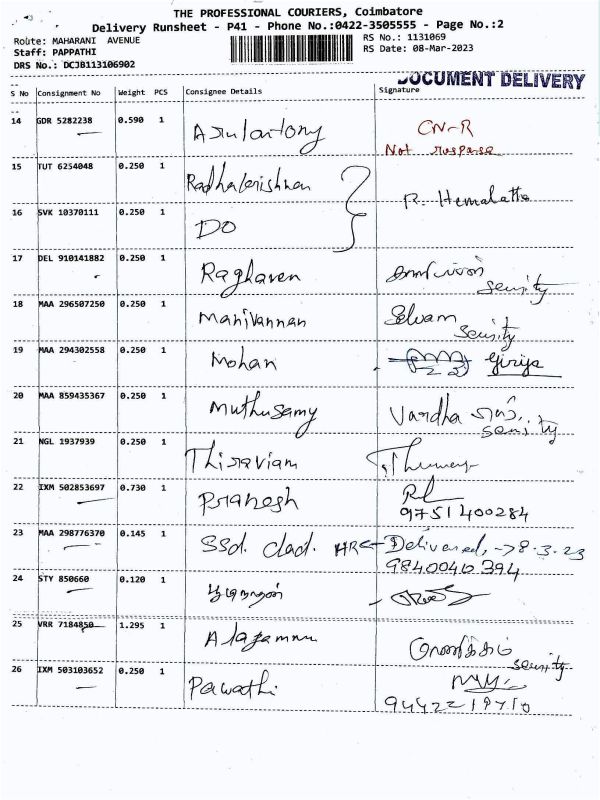 THE PROFESSIONAL COURIERS, Coimbatore
Delivery Runsheet - P41 - Phone No.:0422-3505555 - Page No.:2
Route: MAHARANI AVENUE
RS No.: 1131069
Staff: PAPPATHI
RS Date: 08-Mar-2023
DRS No.: DCJB113106902
DOCUMENT DELIVERY
S No Consignment No Weight PCS Consignee Details Signature
14 GDR 5282238 0.590 1 CN-R
Not response
15 TUT 6254048 0.250 1 Radhakrishnan
R. Hemalatha
16 SVK 10370111 0.250 1 DO
17 DEL 910141882 0.250 1 Raghaven
security
18 MAA 296507250 0.250 1 Manivannan Selvam
security
19 MAA 294302558 0.250 1 Mohan Girija
20 MAA 859435367 0.250 1 Muthusamy Vardha
security
21 NGL 1937939 0.250 1 Thiraviam
22 IXM 502853697 0.730 1 Pranesh
9751400284
23 MAA 298776370 0.145 1 SSd. Clad. HR Delivered, 8.3.23
9840040394
24 STY 850660 0.120 1
25 VRR 7184850 1.295 1
security
26 IXM 503103652 0.250 1 Pawathi
9442219710